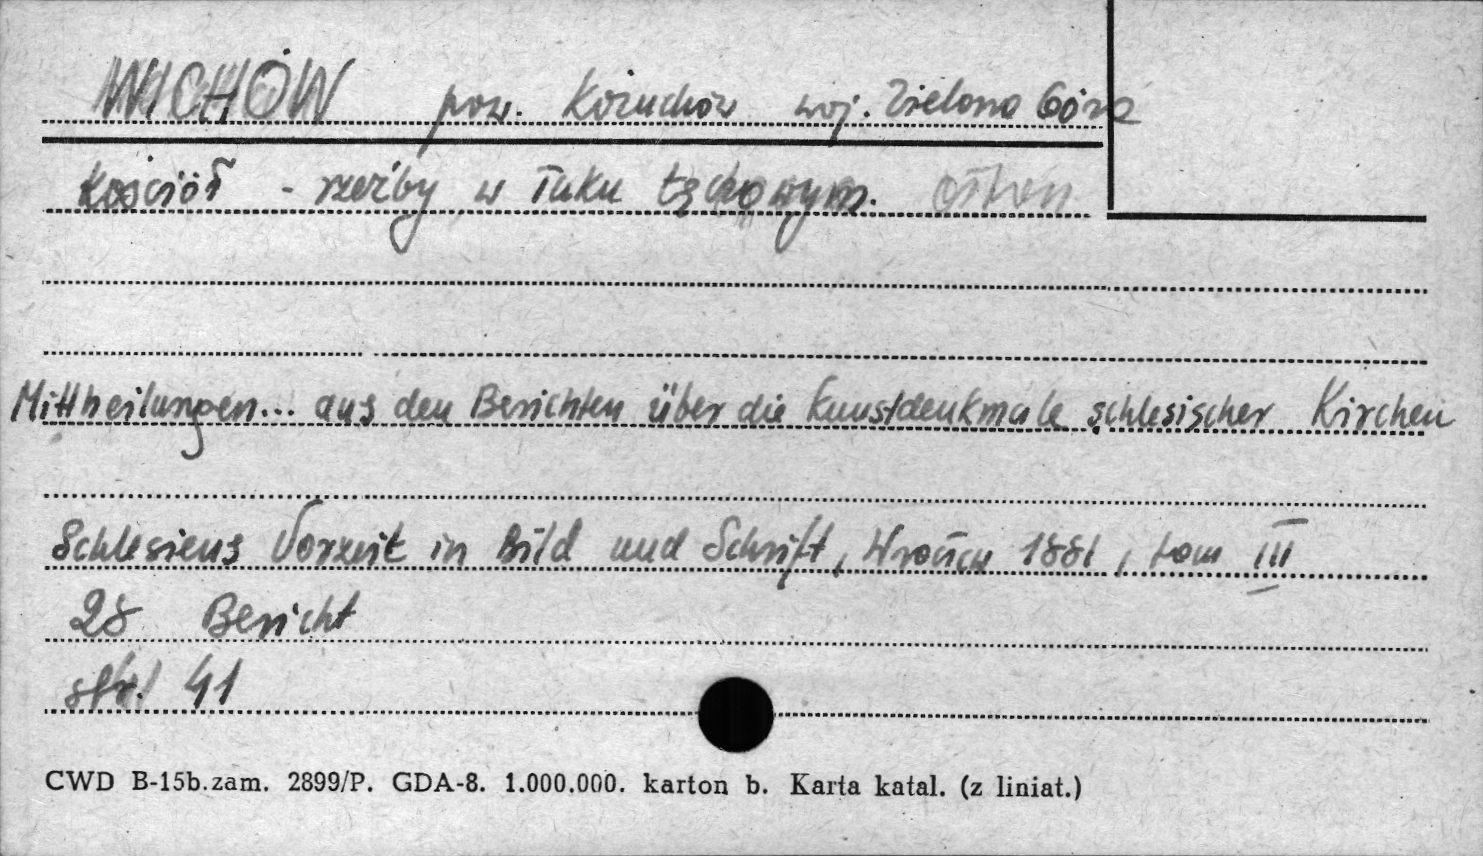 WICHÓW pow. Kożuchów woj. Zielona Góra
Kościół - rzeźby w łuku tęczowym.
Mittheilungen... aus den Berichten über die Kunstdenkmale schlesischer Kirchen
Schlesiens Vorzeit in Bild und Schrift, Wrocław 1881, tom III
28 Bericht
str. 41
CWD B-15b.zam. 2899/P. GDA-8. 1.000.000. karton b. Karta katal. (z liniat.)